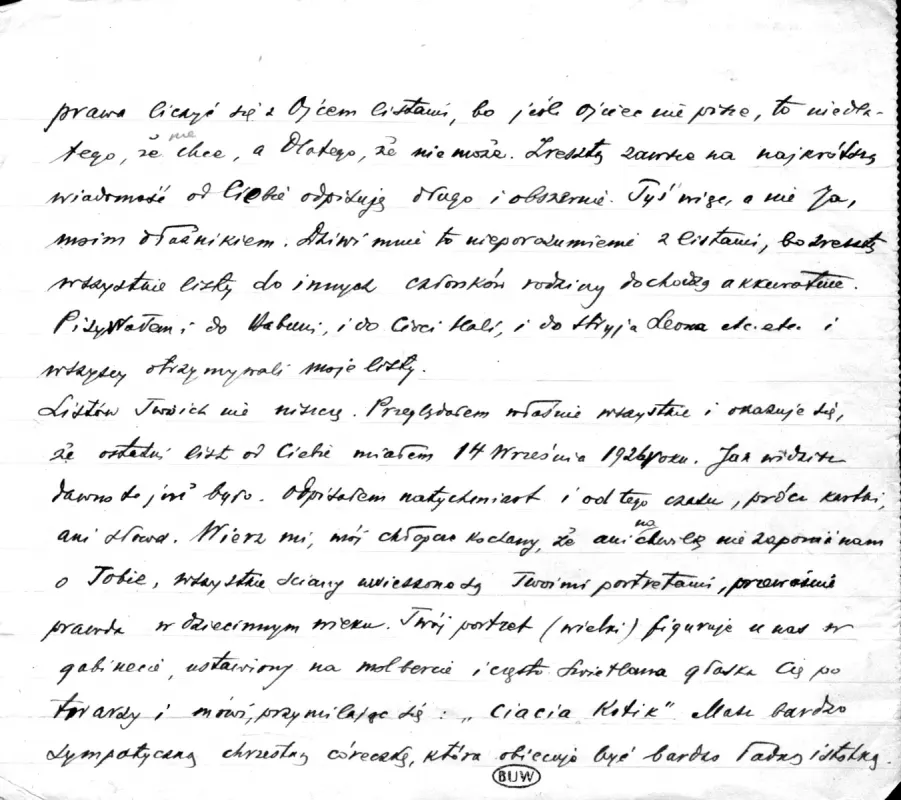 prawa liczyć się z Ojcem listami, bo jeśli Ojciec nie pisze, to niedla-
tego, że nie chce, a Dlatego, że nie może. Zresztą zawsze na najkrótszą
wiadomość od Ciebie odpisuję długo i obszernie. Tyś więc, a nie Ja,
moim dłużnikiem. Dziwi mnie to nieporozumienie z listami, bo zresztą
wszystkie listy do innych członków rodziny dochodzą akkuratnie.
Pisywałem i do Babuni, i do Cioci Hali, i do Stryja Leona etc. etc. i
wszyscy otrzymywali moje listy.
Listów Twoich nie niszczę. Przeglądałem właśnie wszystkie i okazuje się,
że ostatni list od Ciebie miałem 14 Września 1926 roku. Jak widzisz
dawno to już było. Odpisałem natychmiast i od tego czasu, prócz kartki,
ani słowa. Wierz mi, mój chłopcze kochany, że ani na chwilę nie zapominam
o Tobie, wszystkie ściany uwieszone są Twoimi portretami, przeważnie
prawda w dziecinnym wieku. Twój portret (wielki) figuruje u nas w
gabinecie, ustawiony na molbercie i często Swietłana głaska Cię po
twarzy i mówi, przymilając się: „Ciacia Kotik" Masz bardzo
sympatyczną chrzestną córeczkę, która obiecuje być bardzo ładną istotką.
BUW